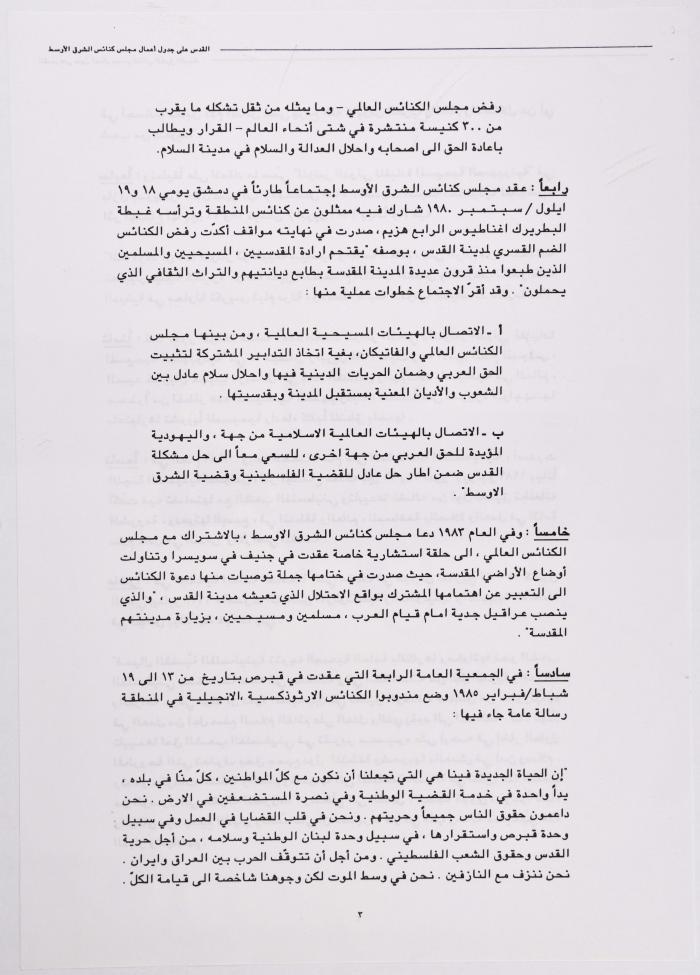 القدس على جدول أعمال مجلس كنائس الشرق الأوسط
رفض مجلس الكنائس العالمي – وما يمثله من ثقل تشكله ما يقرب
من ٣٠٠ كنيسة منتشرة في شتى أنحاء العالم – القرار ويطالب
باعادة الحق الى اصحابه واحلال العدالة والسلام في مدينة السلام.
رابعاً : عقد مجلس كنائس الشرق الأوسط إجتماعاً طارئاً في دمشق يومي ١٨ و١٩
ايلول / سبتمبر ١٩٨٠ شارك فيه ممثلون عن كنائس المنطقة وترأسه غبطة
البطريرك اغناطيوس الرابع هزيم، صدرت في نهايته مواقف أكدّت رفض الكنائس
الضم القسري لمدينة القدس ، بوصفه "يقتحم ارادة المقدسيين ، المسيحيين والمسلمين
الذين طبعوا منذ قرون عديدة المدينة المقدسة بطابع ديانتيهم والتراث الثقافي الذي
يحملون" . وقد أقرّ الاجتماع خطوات عملية منها :
أ ـ الاتصال بالهيئات المسيحية العالمية ، ومن بينها مجلس
الكنائس العالمي والفاتيكان، بغية اتخاذ التدابير المشتركة لتثبيت
الحق العربي وضمان الحريات الدينية فيها واحلال سلام عادل بين
الشعوب والأديان المعنية بمستقبل المدينة وبقدسيتها .
ب ـ الاتصال بالهيئات العالمية الاسلامية من جهة ، واليهودية
المؤيدة للحق العربي من جهة اخرى ، للسعي معاً الى حل مشكلة
القدس ضمن اطار حل عادل للقضية الفلسطينية وقضية الشرق
الاوسط" .
خامساً : وفي العام ١٩٨٣ دعا مجلس كنائس الشرق الاوسط ، بالاشتراك مع مجلس
الكنائس العالمي ، الى حلقة استشارية خاصة عقدت في جنيف في سويسرا وتناولت
أوضاع الأراضي المقدسة، حيث صدرت في ختامها جملة توصيات منها دعوة الكنائس
الى التعبير عن اهتمامها المشترك بواقع الاحتلال الذي تعيشه مدينة القدس ، "والذي
ينصب عراقيل جدية امام قيام العرب ، مسلمين ومسيحيين ، بزيارة مدينتهم
المقدسة" .
سادساً : في الجمعية العامة الرابعة التي عقدت في قبرص بتاريخ من ١٣ الى ١٩
شباط/فبراير ١٩٨٥ وضع مندوبوا الكنائس الارثوذكسية ،الانجيلية في المنطقة
رسالة عامة جاء فيها :
"إن الحياة الجديدة فينا هي التي تجعلنا أن نكون مع كلّ المواطنين ، كلّ منّا في بلده ،
يداً واحدة في خدمة القضية الوطنية وفي نصرة المستضعفين في الارض . نحن
داعمون حقوق الناس جميعاً وحريتهم . ونحن في قلب القضايا في العمل وفي سبيل
وحدة قبرص واستقرارها ، في سبيل وحدة لبنان الوطنية وسلامه ، من أجل حرية
القدس وحقوق الشعب الفلسطيني . ومن أجل أن تتوقّف الحرب بين العراق وايران .
نحن ننزف مع النازفين . نحن في وسط الموت لكن وجوهنا شاخصة الى قيامة الكلّ .
٣